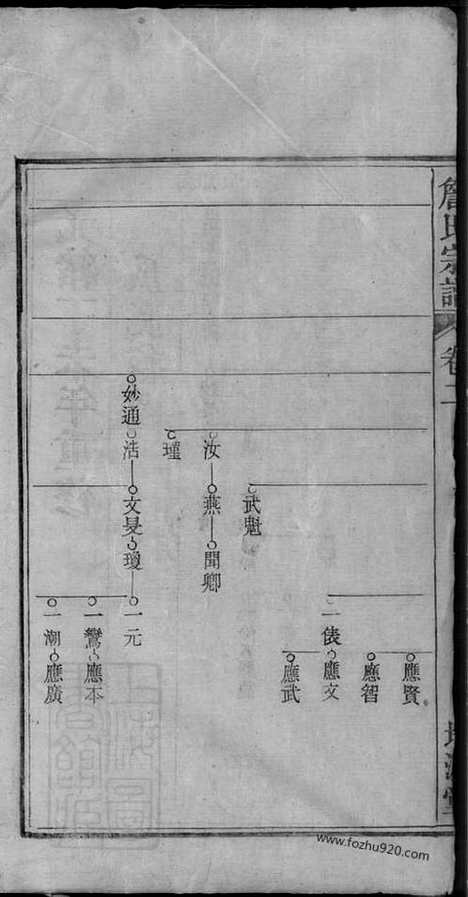 詹氏宗譜
卷二
應賢
應智
一俵 應文
應武
武魁
汝 燕 聞卿
瑾
妙通 浩 文旻 瓊 一元
一鸞 應本
一潮 應廣
www.fozhu920.com